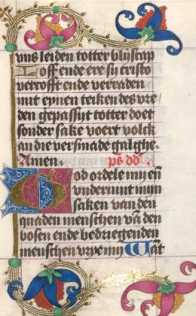 vns leiden totter blyscap
Loff ende ere si cristo
vercofft ende verraden
mit eynen teiken des vre
den ghepassyt totter doet
sonder sake voert volck
an die versmade galghe.
Amen. ps dd
God ordele my en
vnderunt mijn
saken van den
quaden menschen vn̄ den
bosen ende bedriegenden
menschen vrye my Wāt